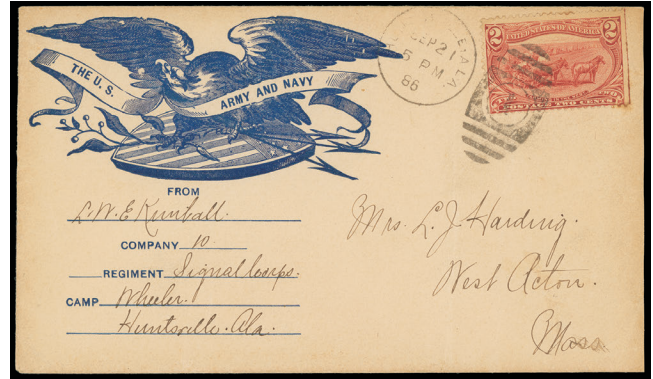 THE U.S.
ARMY AND NAVY
SEP 21
5 PM
86
E, ALA.
2
UNITED STATES OF AMERICA
2
POSTAGE TWO CENTS
FROM
L. W. E. Kimball.
COMPANY 10
REGIMENT Signal Corps.
CAMP Wheeler.
Huntsville. Ala.
Mrs. L. J. Harding.
West Acton.
Mass